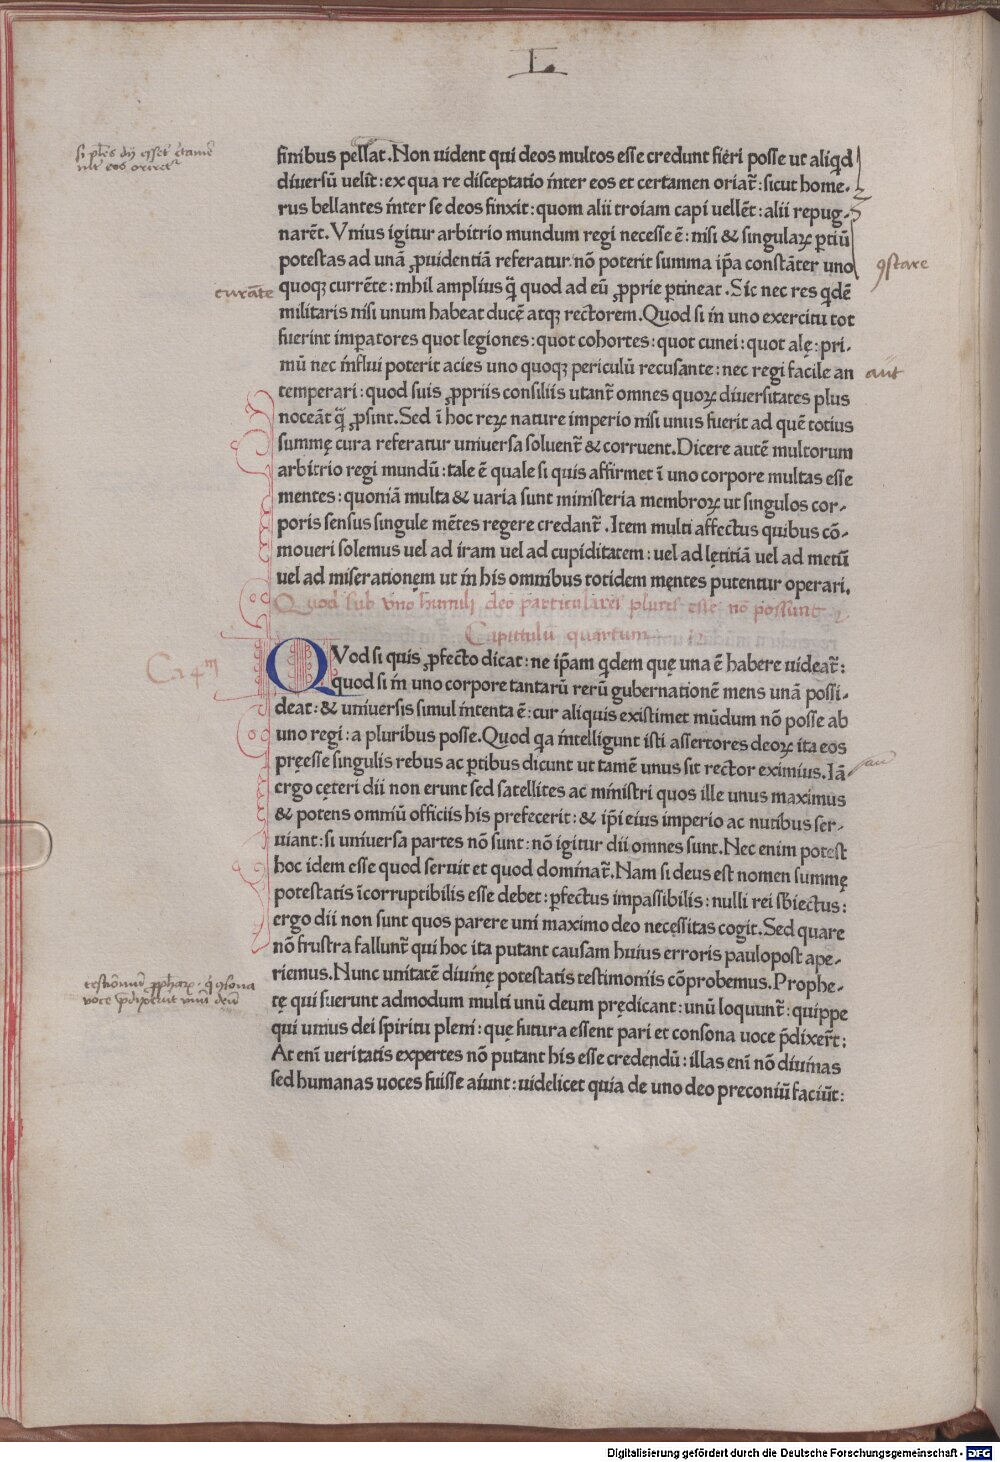 L.
si plēs dij eſſet
finibus peſſat.Non uident qui deos multos eſſe credunt fieri poſſe ut aliqd
diuerſū uelīt:ex qua re diſceptatio inter eos et certamen oriat̄:ſicut home-
rus bellantes inter ſe deos finxit:quom alii troiam capi uellēt:alii repug-
narēt.Vnius igitur arbitrio mundum regi neceſſe ē:niſi & ſingulaꝝ ꝑtiū
poteſtas ad unā ꝓuidentiā referatur nō poterit ſumma ip̄a conſtāter uno
ꝯſtare
curāte
quoqꝫ currēte:nihil amplius q̄ quod ad eū ꝓprie ꝑtineat.Sic nec res qdē
militaris niſi unum habeat ducē atqꝫ rectorem.Quod ſi in uno exercitu tot
fuerint imꝑatores quot legiones:quot cohortes:quot cunei:quot alę:pri-
mū nec inſtui poterit acies uno quoqꝫ periculū recuſante:nec regi facile an
aut
temperari:quod ſuis ꝓpriis conſiliis utant̄ omnes quoꝝ diuerſitates plus
noceāt q̄ ꝓſint.Sed ī hoc reꝝ nature imperio niſi unus fuerit ad quē totius
ſummę cura referatur uniuerſa ſoluent̄ & corruent.Dicere autē multorum
arbitrio regi mundū:tale ē quale ſi quis affirmet ī uno corpore multas eſſe
mentes:quoniā multa & uaria ſunt miniſteria membroꝝ ut ſingulos cor-
poris ſenſus ſingule mētes regere credant̄.Item multi affectus quibus cō-
moueri ſolemus uel ad iram uel ad cupiditatem:uel ad lętitiā uel ad metū
uel ad miſerationęm ut in his omnibus totidem męntes putentur operari.
Quod ſub vno humili deo particulares plures eſſe nō poſſunt
Capitulū quartum
Ca 4m
QVod ſi quis ꝓfecto dicat:ne ip̄am qdem quę una ē habere uideat̄:
quod ſi in uno corpore tantarū rerū gubernationē mens unā poſſi-
deat:& uniuerſis ſimul intenta ē:cur aliquis exiſtimet mūdum nō poſſe ab
uno regi:a pluribus poſſe.Quod qa intelligunt iſti aſſertores deoꝝ ita eos
pręeſſe ſingulis rebus ac ꝑtibus dicunt ut tamē unus ſit rector eximius.Iā
ergo cęteri dii non erunt ſed ſatellites ac miniſtri quos ille unus maximus
& potens omniū officiis his prefecerit:& ip̄i eius imperio ac nutibus ſer-
uiant:ſi uniuerſa partes nō ſunt:nō igitur dii omnes ſunt.Nec enim poteſt
hoc idem eſſe quod ſeruit et quod dominat̄.Nam ſi deus eſt nomen ſummę
poteſtatis īcorruptibilis eſſe debet:ꝑfectus impaſſibilis:nulli rei ſb̄iectus:
ergo dii non ſunt quos parere uni maximo deo neceſſitas cogit.Sed quare
nō fruſtra fallunt̄ qui hoc ita putant cauſam huius erroris paulopoſt ape-
riemus.Nunc unitatē diuinę poteſtatis teſtimoniis cōprobemus.Prophe-
voce p̄dixerūt unū deū
tę qui fuerunt admodum multi unū deum prędicant:unū loquunt̄:quippe
qui unius dei ſpiritu pleni:quę futura eſſent pari et conſona uoce p̄dixer̄t:
At enī ueritatis expertes nō putant his eſſe credendū:illas enī nō diuinas
ſed humanas uoces fuiſſe aiunt:uidelicet quia de uno deo preconiū faciūt:
Digitalisierung gefördert durch die Deutsche Forschungsgemeinschaft - DFG